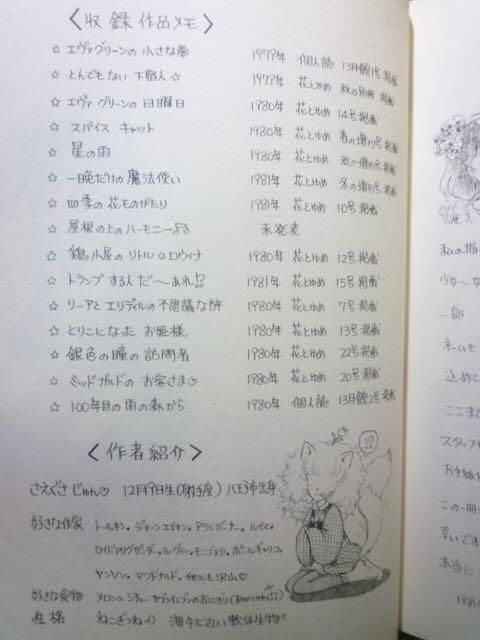 〈収録作品メモ〉
☆ エヴァグリーンの小さな夢 1979年 個人誌 13月館1号掲載
☆ とんでもない下宿人☆ 1979年 花とゆめ 秋の別冊掲載
☆ エヴァグリーンの日曜日 1980年 花とゆめ 14号掲載
☆ スパイス・キャット 1980年 花とゆめ 春の増刊号掲載
☆ 星の雨 1980年 花とゆめ 秋の増刊号掲載
☆ 一晩だけの魔法使い 1981年 花とゆめ 冬の増刊号掲載
☆ 四季の花ものがたり 1981年 花とゆめ 10号掲載
☆ 屋根の上のハーモニー 未発表
☆ 鶏小屋のリトル☆ロウィナ 1980年 花とゆめ 12号掲載
☆ トランプする人だ〜あれ!? 1981年 花とゆめ 15号掲載
☆ リーアとエリディルの不思議な 1980年 花とゆめ 7号掲載
☆ とりこになったお姫様 1980年 花とゆめ 13号掲載
☆ 銀色の瞳の訪問者 1980年 花とゆめ 22号掲載
☆ ミッドガルドのお客さま♡ 1980年 花とゆめ 20号掲載
☆ 100年目の雨の森から 1980年 個人誌 13月館2号掲載
〈作者紹介〉
!?
さえぐさじゅん♡ 12月9日生(射手座) 八王子市出身
好きな作家 トールキン。ジョーン・エイキン。アラン・ガーナー。ルイス。
ロイド・アリグザンダー。ル・グィン。モンゴメリ。ポール・ギャリコ。
ヤンソン。マクドナルド。他にも沢山♡
好きな食物 メロン。シチュー。セブンイレブンのおにぎり
性格 ねこぎつね 海牛に近い軟体生物
私の描い
少女〜な
一部
ネームも
込めて
ここま
スタッフ
お手紙を
この一冊
幸いです
本当に
198